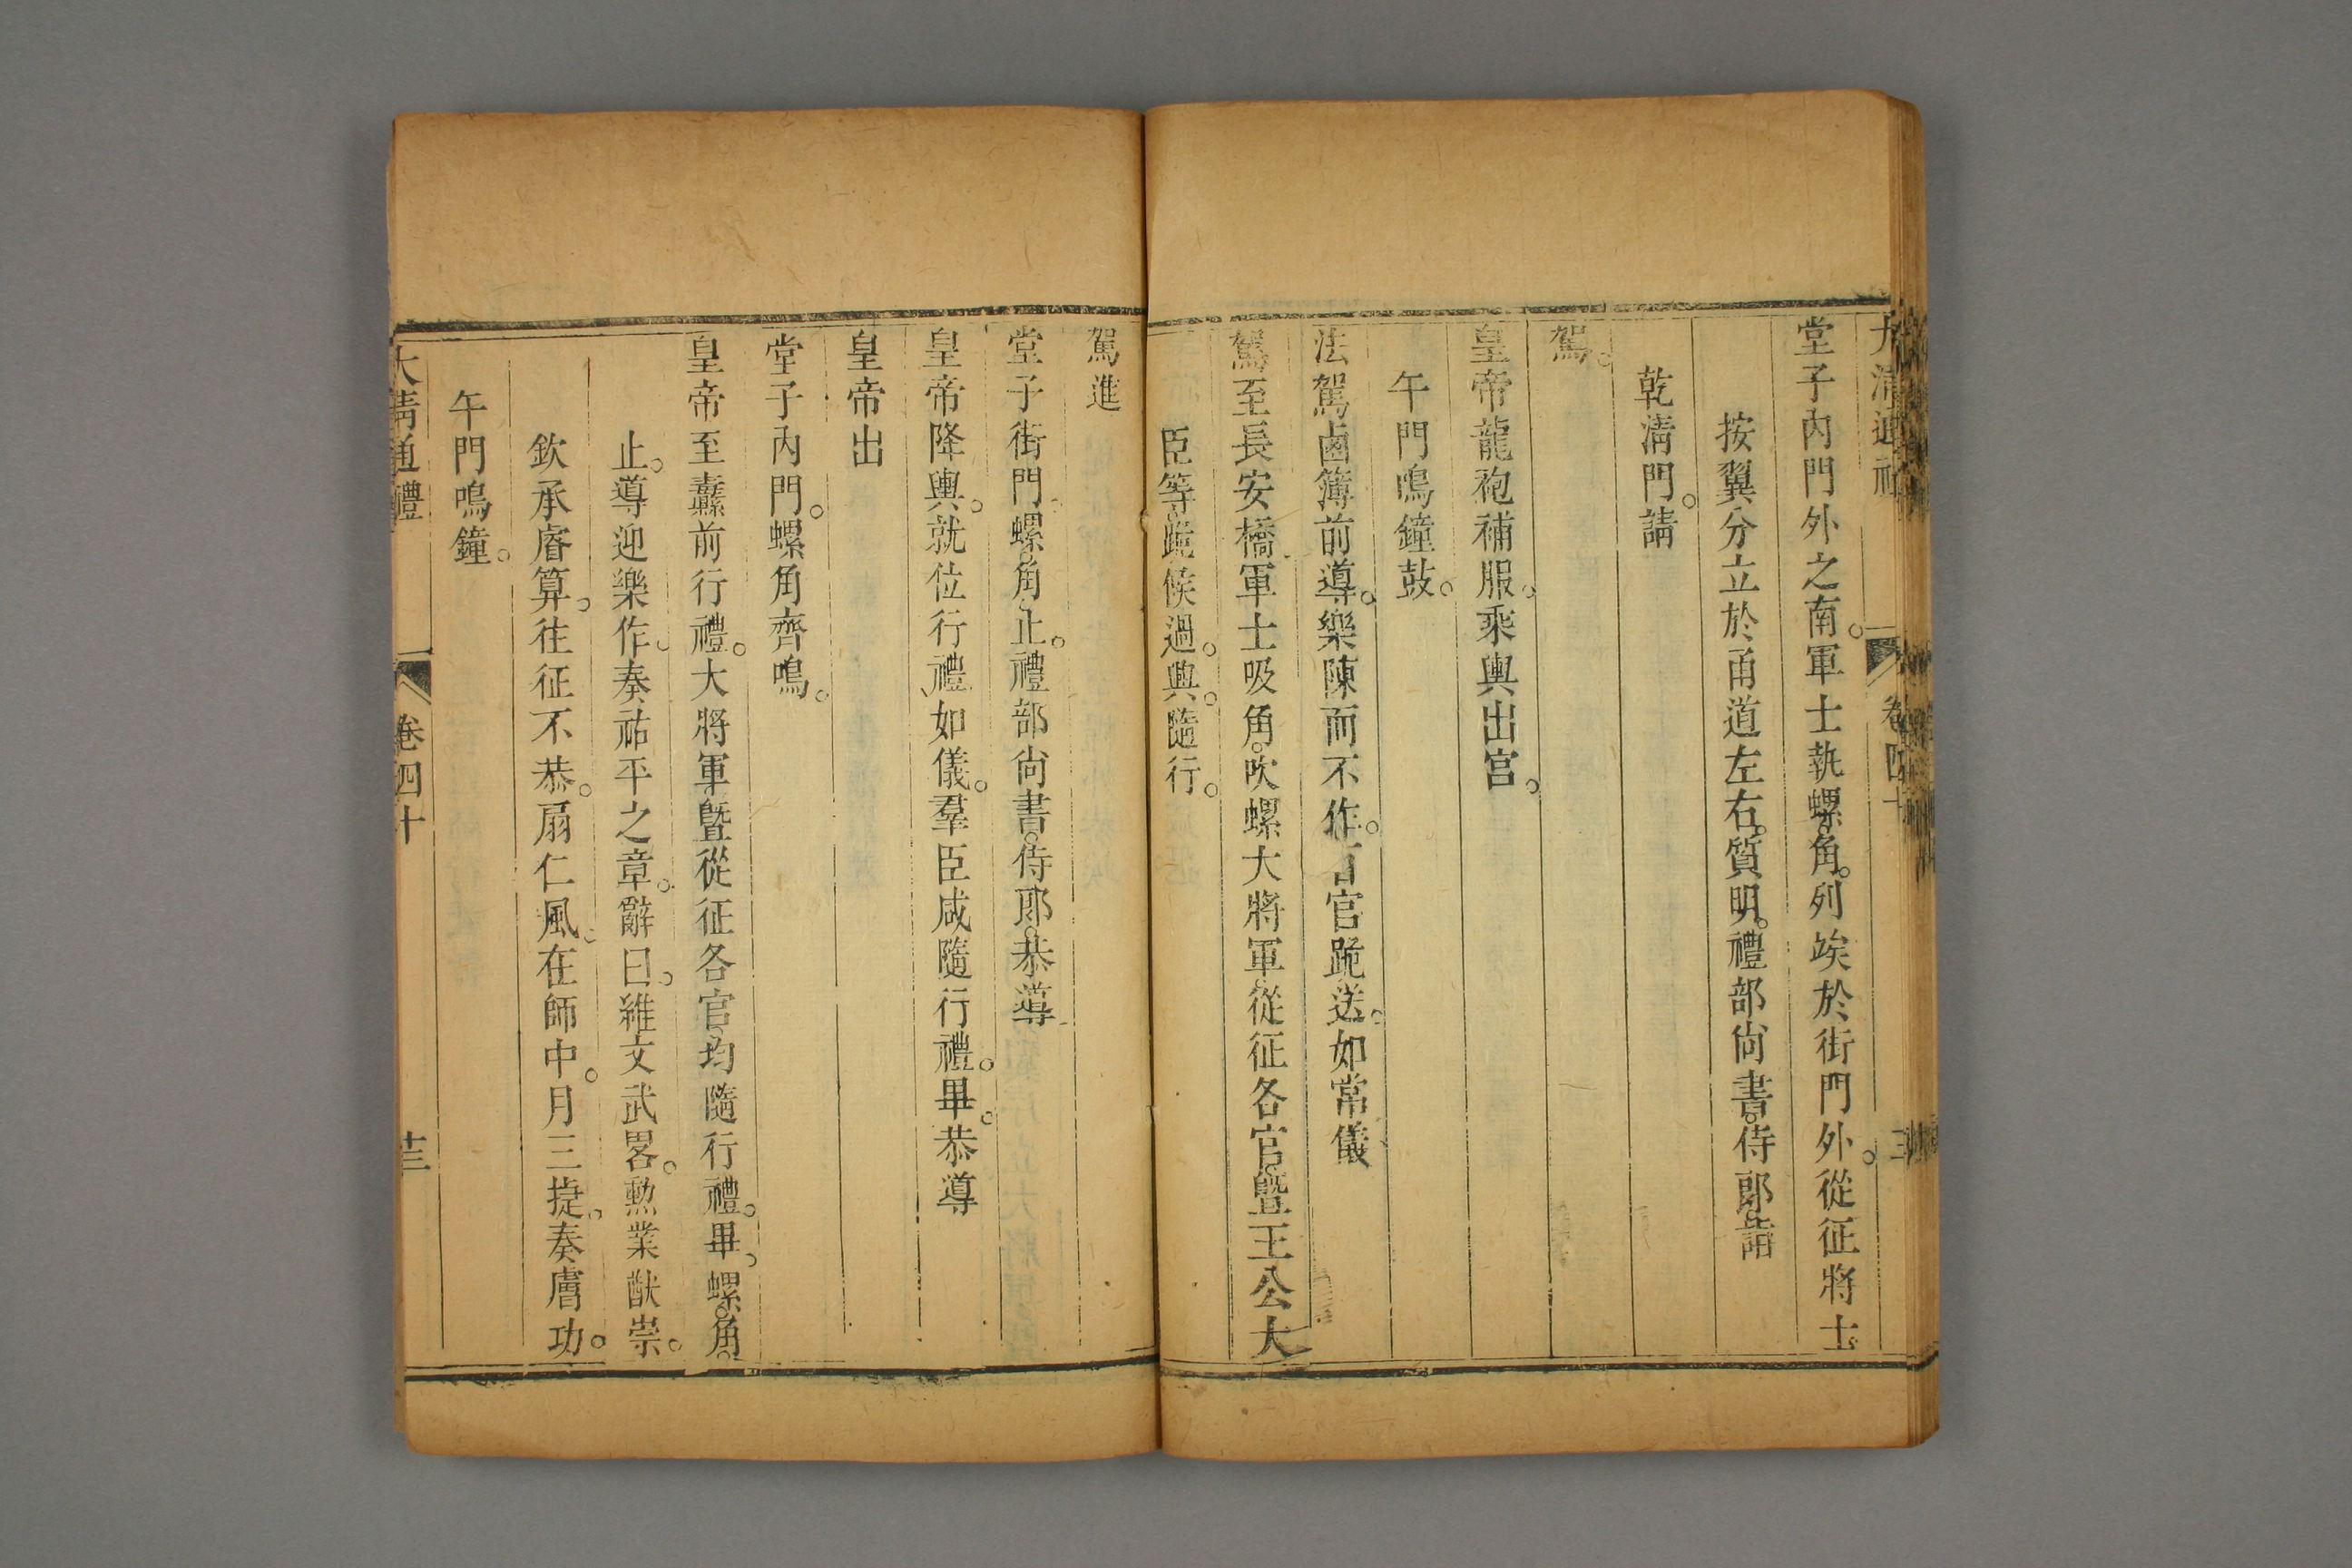 大清通禮 卷四十
堂子內門外之南。軍士執螺。角。列竢於街門外。從征將士。
按翼分立於甬道左右。質明。禮部尙書。侍郎。詣
乾淸門。請
駕。
皇帝龍袍補服。乘輿出宮。
午門鳴鐘鼓。
法駕鹵簿前導。樂陳而不作。百官跪送。如常儀
駕至長安橋。軍士吸角。吹螺大將軍。從征各官。曁王公大
臣等。跪候過。興。隨行。
駕進
堂子街門。螺。角。止。禮部尙書。侍郎。恭導
皇帝降輿。就位行禮如儀。羣臣咸隨行禮。畢。恭導
皇帝出
堂子內門。螺角齊鳴。
皇帝至纛前行禮。大將軍曁從征各官。均隨行禮。畢。螺。角。
止。導迎樂作。奏祐平之章。辭曰。維文武畧。勲業猷崇。
欽承睿算。往征不恭。扇仁風。在師中。月三捷。奏膚功。
午門鳴鐘。
大淸通禮 卷四十 十三